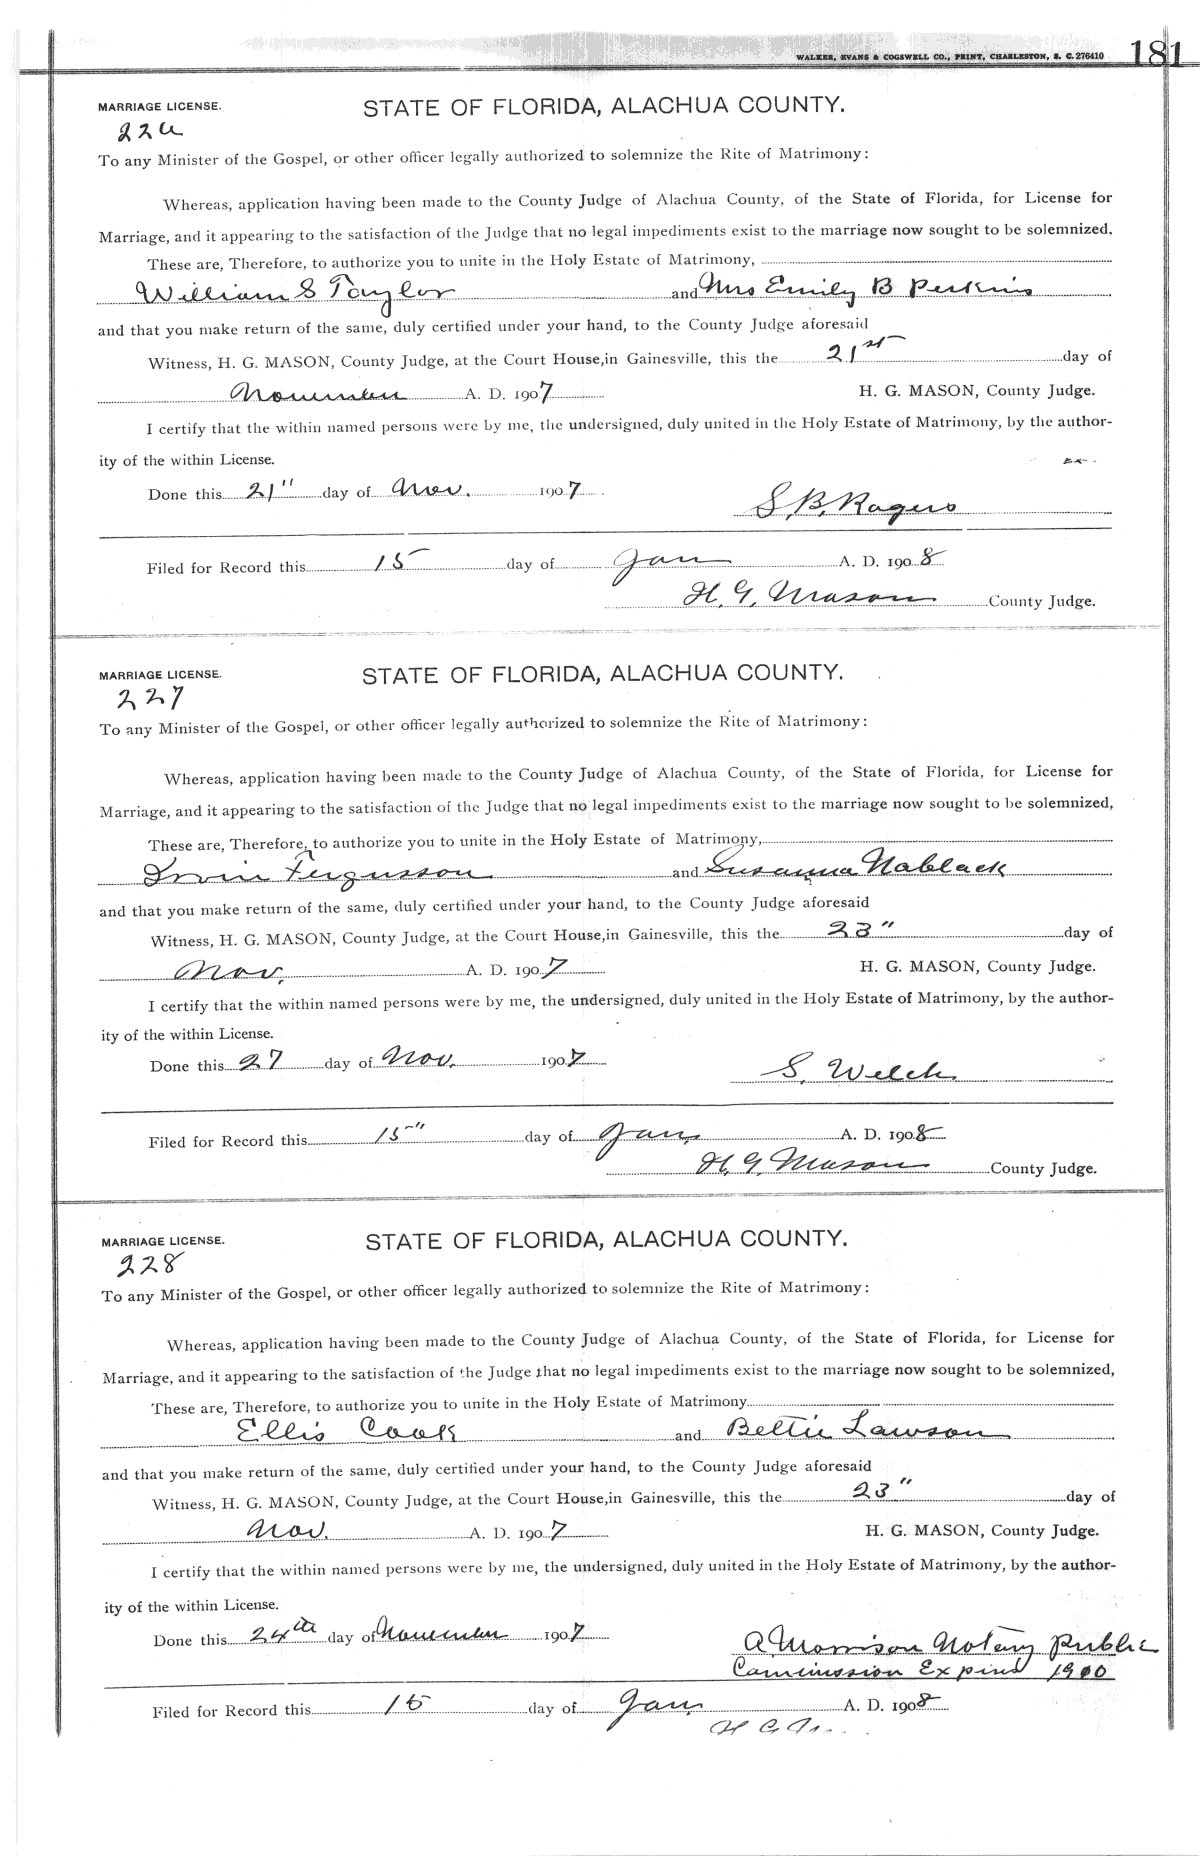 WALKER, EVANS & COGSWELL CO., PRINT, CHARLESTON, S. C. 276410 181
MARRIAGE LICENSE. STATE OF FLORIDA, ALACHUA COUNTY.
226
To any Minister of the Gospel, or other officer legally authorized to solemnize the Rite of Matrimony:
Whereas, application having been made to the County Judge of Alachua County, of the State of Florida, for License for
Marriage, and it appearing to the satisfaction of the Judge that no legal impediments exist to the marriage now sought to be solemnized,
These are, Therefore, to authorize you to unite in the Holy Estate of Matrimony,
William S Taylor and Mrs Emily B Perkins
and that you make return of the same, duly certified under your hand, to the County Judge aforesaid
Witness, H. G. MASON, County Judge, at the Court House, in Gainesville, this the 21st day of
November A. D. 1907 H. G. MASON, County Judge.
I certify that the within named persons were by me, the undersigned, duly united in the Holy Estate of Matrimony, by the author-
ity of the within License.
Done this 21" day of Nov. 1907
S. B. Rogers
Filed for Record this 15 day of Jan A. D. 1908
H. G. Mason County Judge.
MARRIAGE LICENSE. STATE OF FLORIDA, ALACHUA COUNTY.
227
To any Minister of the Gospel, or other officer legally authorized to solemnize the Rite of Matrimony:
Whereas, application having been made to the County Judge of Alachua County, of the State of Florida, for License for
Marriage, and it appearing to the satisfaction of the Judge that no legal impediments exist to the marriage now sought to be solemnized,
These are, Therefore, to authorize you to unite in the Holy Estate of Matrimony,
Irvin Fergusson and Susanna Nablack
and that you make return of the same, duly certified under your hand, to the County Judge aforesaid
Witness, H. G. MASON, County Judge, at the Court House, in Gainesville, this the 23" day of
Nov. A. D. 1907 H. G. MASON, County Judge.
I certify that the within named persons were by me, the undersigned, duly united in the Holy Estate of Matrimony, by the author-
ity of the within License.
Done this 27 day of Nov. 1907
S. Welch
Filed for Record this 15" day of Jan. A. D. 1908
H. G. Mason County Judge.
MARRIAGE LICENSE. STATE OF FLORIDA, ALACHUA COUNTY.
228
To any Minister of the Gospel, or other officer legally authorized to solemnize the Rite of Matrimony:
Whereas, application having been made to the County Judge of Alachua County, of the State of Florida, for License for
Marriage, and it appearing to the satisfaction of the Judge that no legal impediments exist to the marriage now sought to be solemnized,
These are, Therefore, to authorize you to unite in the Holy Estate of Matrimony
Ellis Cook and Bettie Lawson
and that you make return of the same, duly certified under your hand, to the County Judge aforesaid
Witness, H. G. MASON, County Judge, at the Court House, in Gainesville, this the 23" day of
Nov. A. D. 1907 H. G. MASON, County Judge.
I certify that the within named persons were by me, the undersigned, duly united in the Holy Estate of Matrimony, by the author-
ity of the within License.
Done this 24th day of November 1907
A Morrison Notary Public
Commission Expires 1900
Filed for Record this 15 day of Jan. A. D. 1908
H G